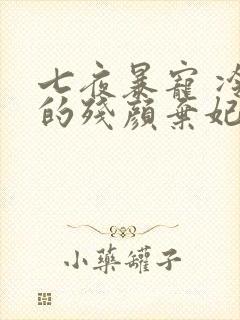 七夜暴寵 冷
的殘顏棄妃
小藥罐子